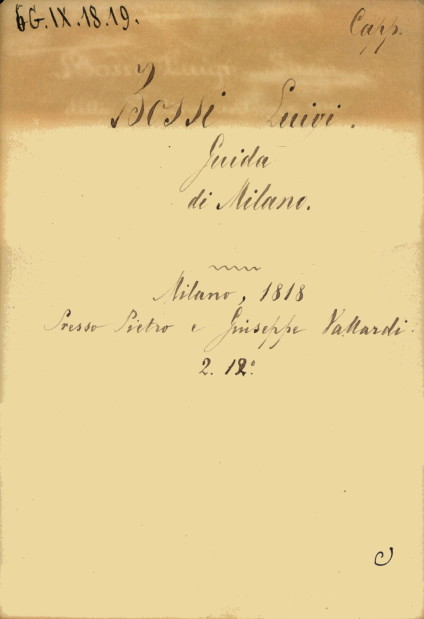 6G.IX.18.19.
Capp.
Bossi Luigi.
Guida
di Milano.
Milano, 1818
Presso Pietro e Giuseppe Vallardi.
2. 12°